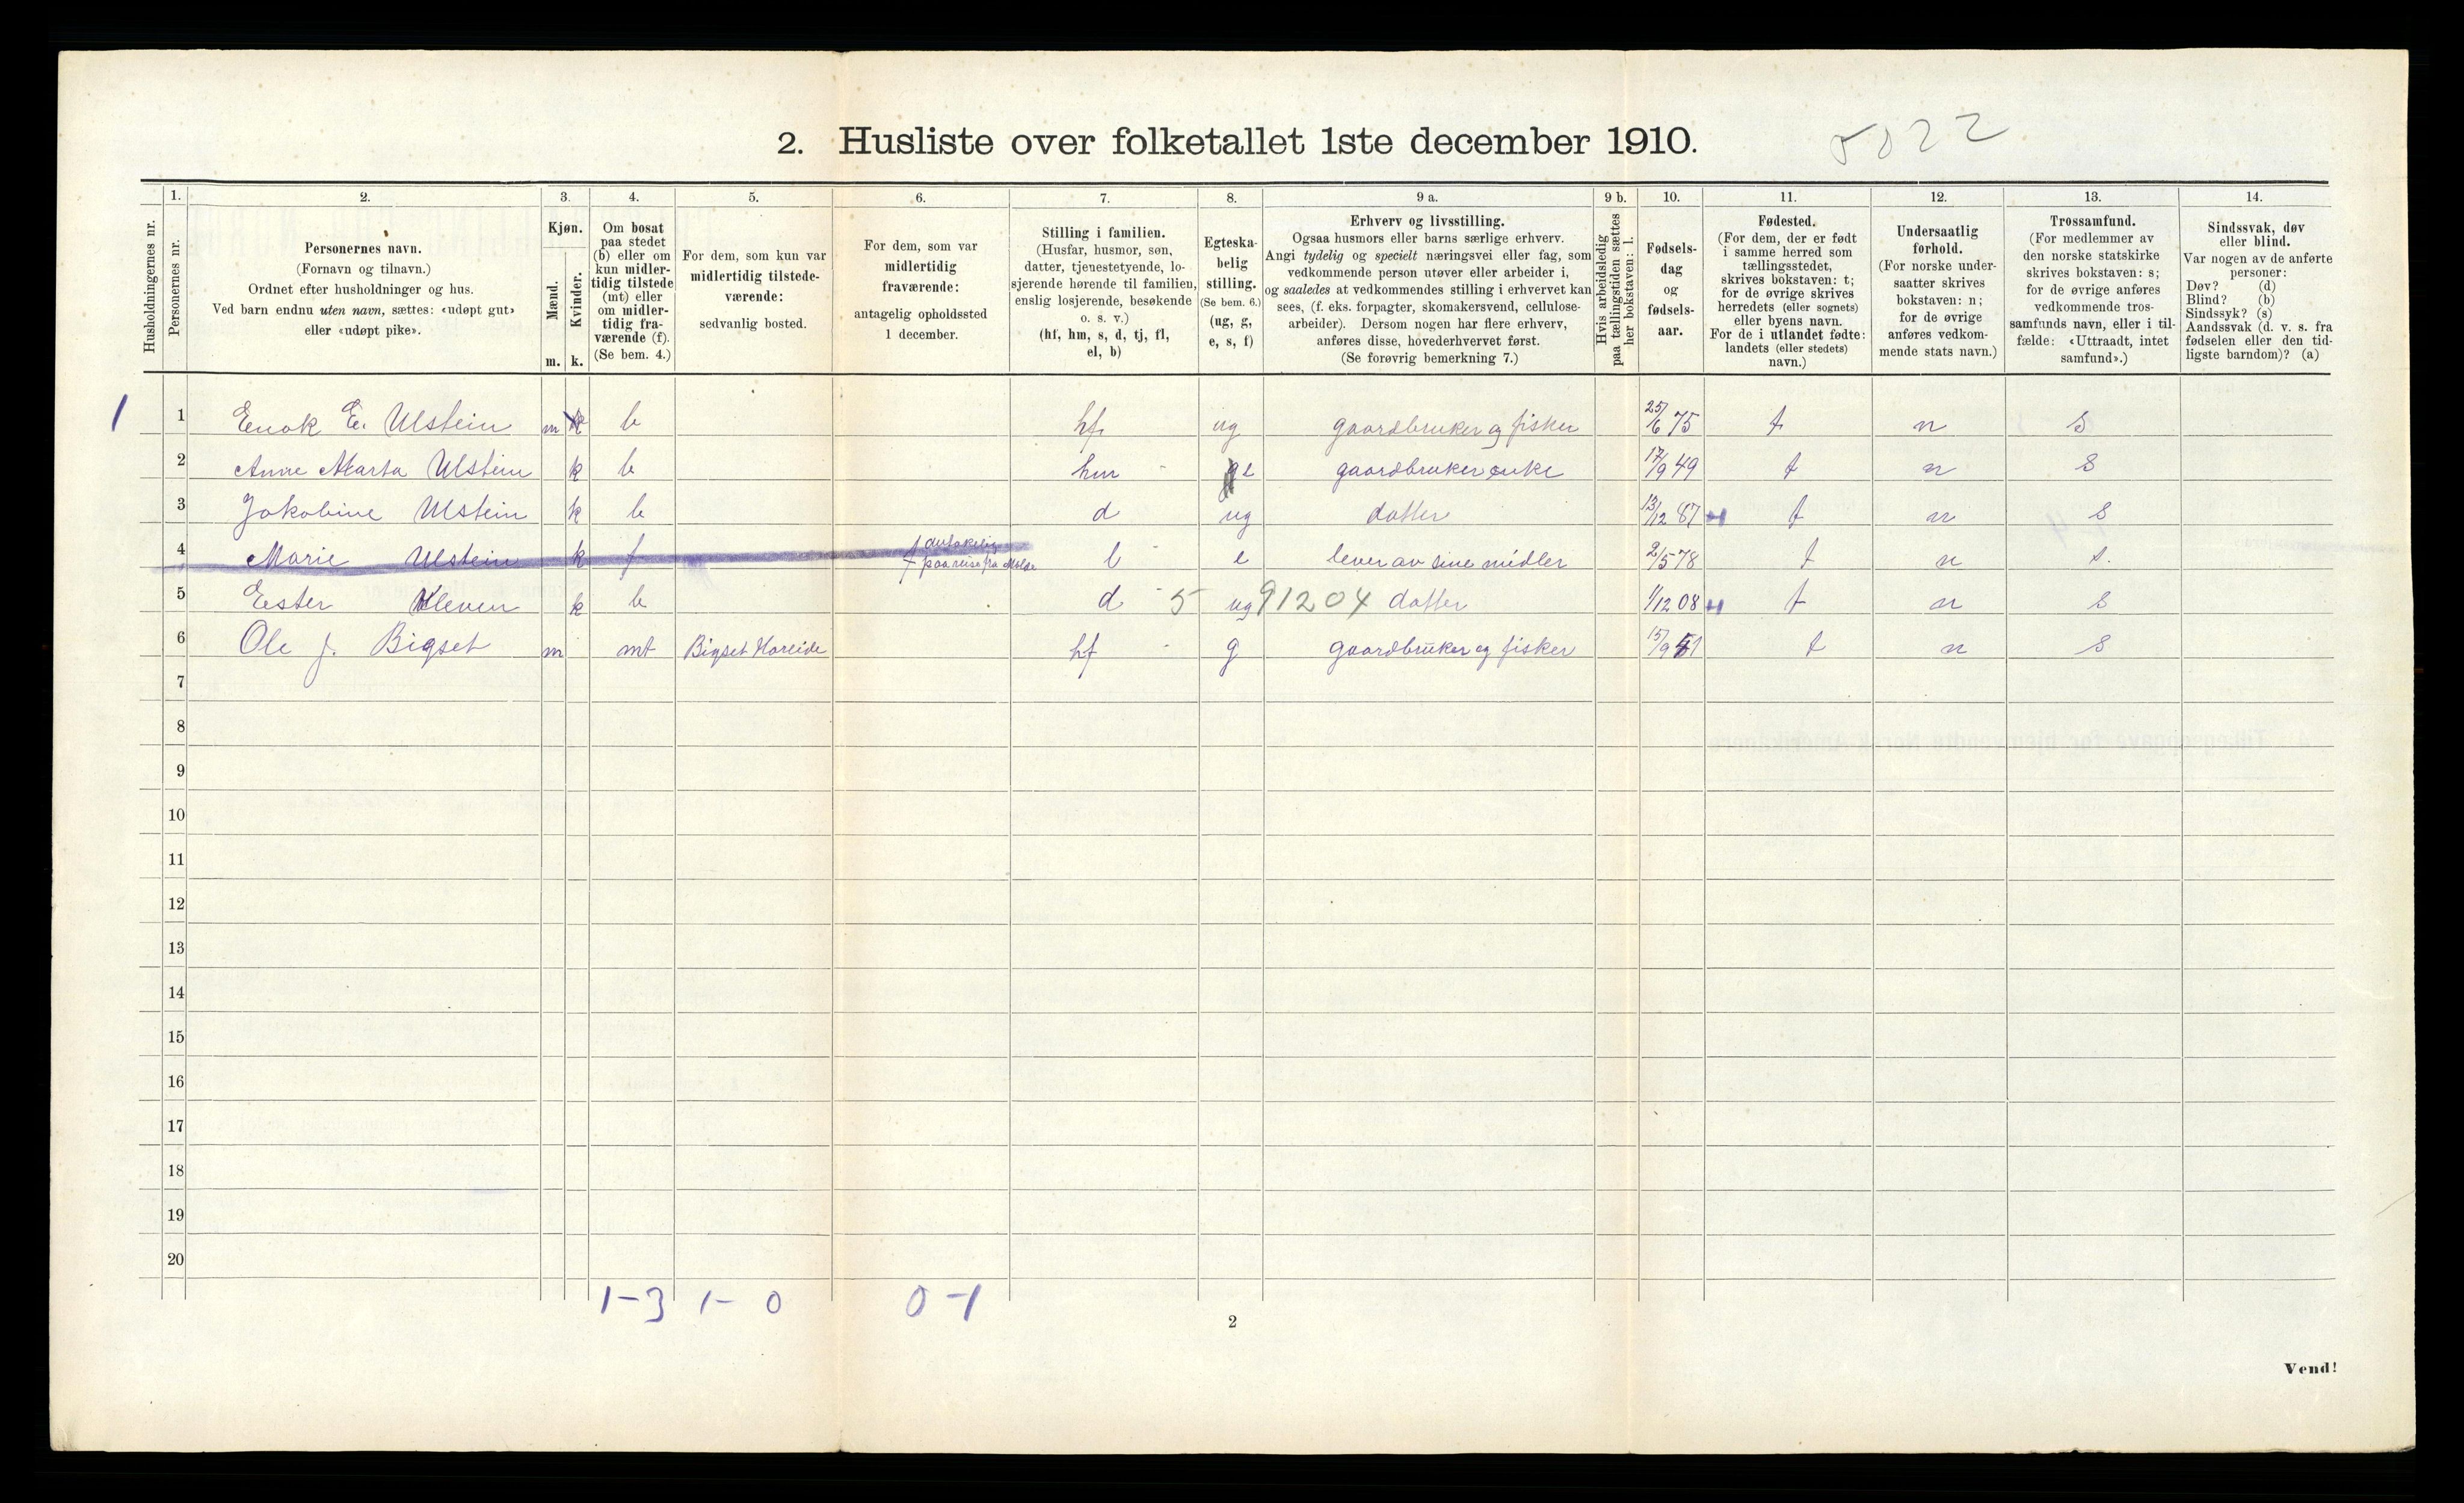 2. Husliste over folketallet 1ste december 1910.
5022
Husholdningernes nr.
1.
Personernes nr.
2.
Personernes navn.
(Fornavn og tilnavn.)
Ordnet efter husholdninger og hus.
Ved barn endnu uten navn, sættes: «udøpt gut»
eller «udøpt pike».
3.
Kjøn.
Mænd.
Kvinder.
m. k.
4.
Om bosat
paa stedet
(b) eller om
kun midler-
tidig tilstede
(mt) eller
om midler-
tidig fra-
værende (f).
(Se bem. 4.)
5.
For dem, som kun var
midlertidig tilstede-
værende:
sedvanlig bosted.
6.
For dem, som var
midlertidig
fraværende:
antagelig opholdssted
1 december.
7.
Stilling i familien.
(Husfar, husmor, søn,
datter, tjenestetyende, lo-
sjerende hørende til familien,
enslig losjerende, besøkende
o. s. v.)
(hf, hm, s, d, tj, fl,
el, b)
8.
Egteska-
belig
stilling.
(Se bem. 6.)
(ug, g,
e, s, f)
9 a.
Erhverv og livsstilling.
Ogsaa husmors eller barns særlige erhverv.
Angi tydelig og specielt næringsvei eller fag, som
vedkommende person utøver eller arbeider i,
og saaledes at vedkommendes stilling i erhvervet kan
sees, (f. eks. forpagter, skomakersvend, cellulose-
arbeider). Dersom nogen har flere erhverv,
anføres disse, hovederhvervet først.
(Se forøvrig bemerkning 7.)
9 b.
Hvis arbeidsledig
paa tællingstiden sættes
her bokstaven: l.
10.
Fødsels-
dag
og
fødsels-
aar.
11.
Fødested.
(For dem, der er født
i samme herred som
tællingsstedet,
skrives bokstaven: t;
for de øvrige skrives
herredets (eller sognets)
eller byens navn.
For de i utlandet fødte:
landets (eller stedets)
navn.)
12.
Undersaatlig
forhold.
(For norske under-
saatter skrives
bokstaven: n;
for de øvrige
anføres vedkom-
mende stats navn.)
13.
Trossamfund.
(For medlemmer av
den norske statskirke
skrives bokstaven: s;
for de øvrige anføres
vedkommende tros-
samfunds navn, eller i til-
fælde: «Uttraadt, intet
samfund».)
14.
Sindssvak, døv
eller blind.
Var nogen av de anførte
personer:
Døv? (d)
Blind? (b)
Sindssyk? (s)
Aandssvak (d. v. s. fra
fødselen eller den tid-
ligste barndom)? (a)
1 1 Enok E. Ulstein m k b hf ug gaardbruker og fisker 25/6 75 t n s
2 Anne Marta Ulstein k b hm e gaardbruker enke 17/9 49 t n s
3 Jakobine Ulstein k b d ug datter 13/12 87 t n s
4 Marie Ulstein k f paa reise fra Molde b e lever av sine midler 2/5 78 t n s.
5 Ester Kleven k b d 5 ug 91204 datter 1/12 08 t n s
6 Ole J. Bigset m mt Bigset Hareide hf g gaardbruker og fisker 15/9 51 t n s
7
8
9
10
11
12
13
14
15
16
17
18
19
20
1-3 1-0 0-1
2
Vend!